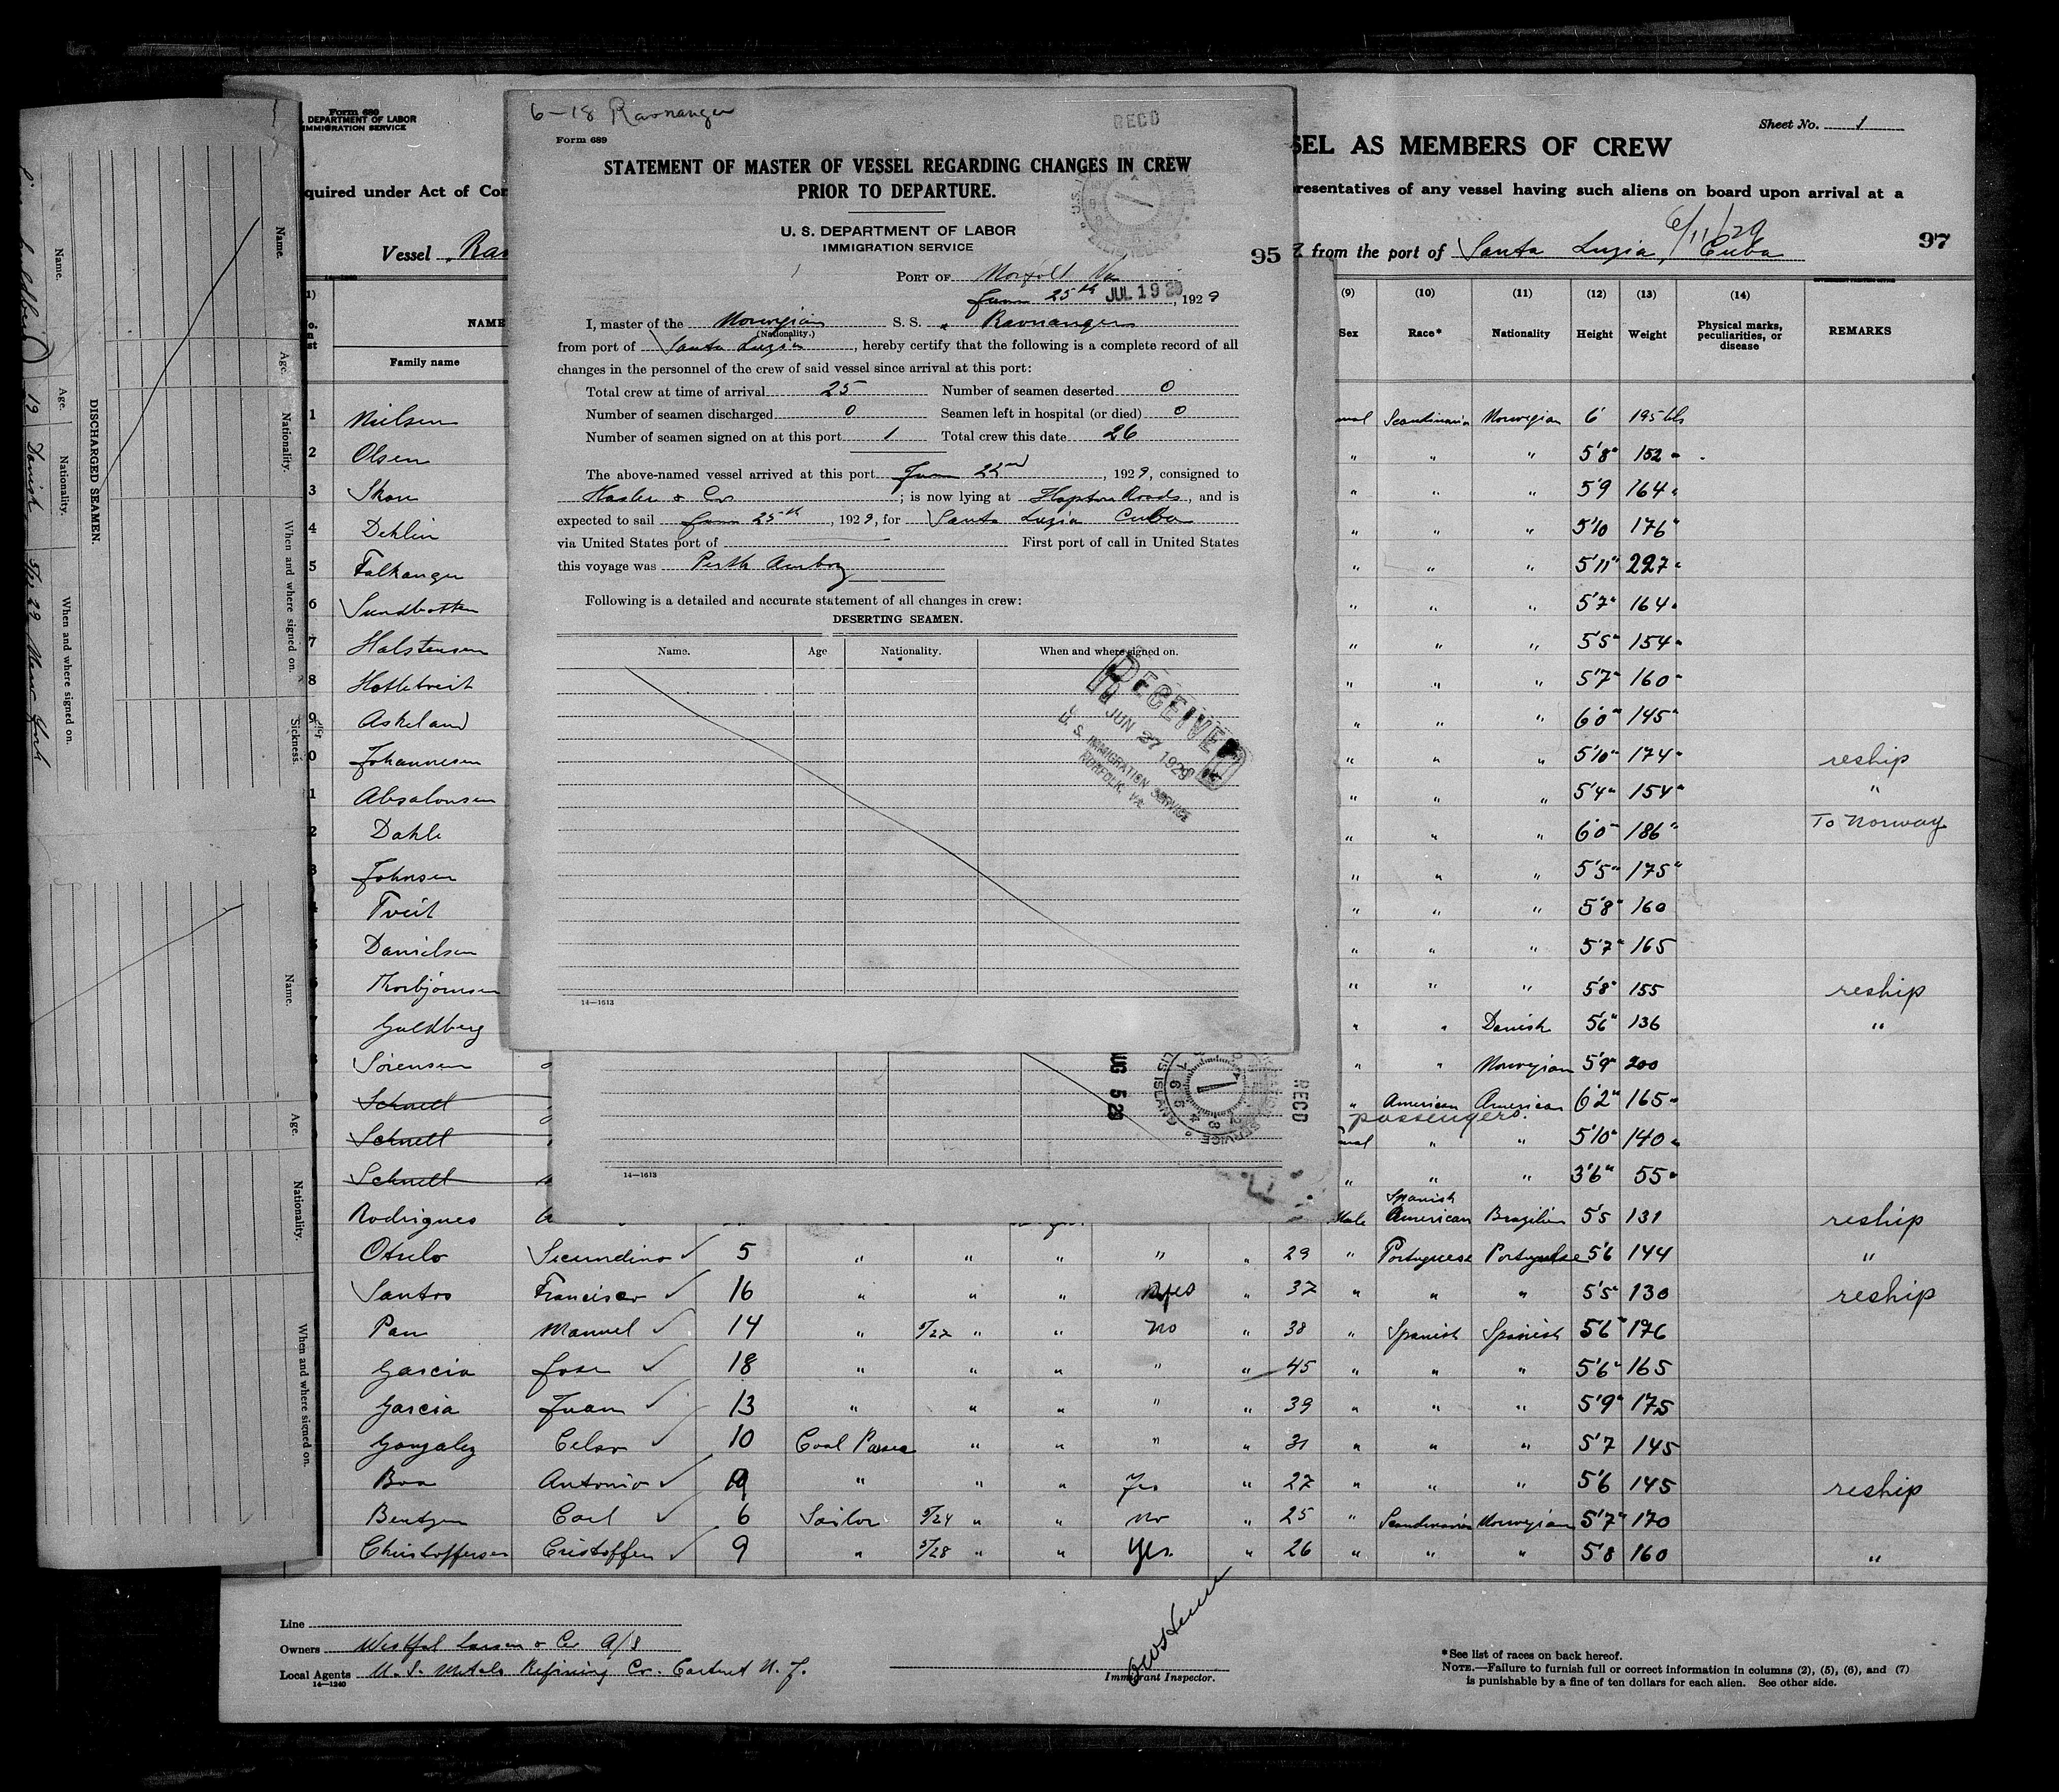 6-18 Ravnanger
Form 689
RECD
STATEMENT OF MASTER OF VESSEL REGARDING CHANGES IN CREW
PRIOR TO DEPARTURE.
U. S. DEPARTMENT OF LABOR
IMMIGRATION SERVICE
95
PORT OF Norfolk Va
June 25th JUL 19 29, 1929
I, master of the Norwegian S. S. " Ravnanger
(Nationality.)
from port of Santa Luzia, hereby certify that the following is a complete record of all
changes in the personnel of the crew of said vessel since arrival at this port:
Total crew at time of arrival 25 Number of seamen deserted 0
Number of seamen discharged 0 Seamen left in hospital (or died) 0
Number of seamen signed on at this port 1 Total crew this date 26
The above-named vessel arrived at this port June 22nd, 1929, consigned to
Hasler & Co ; is now lying at Hapton Roads, and is
expected to sail June 25th, 1929, for Santa Luzia Cuba
via United States port of First port of call in United States
this voyage was Perth Amboy
Following is a detailed and accurate statement of all changes in crew:
DESERTING SEAMEN.
Name. Age Nationality. When and where signed on.
RECEIVED
JUN 27 1929
U. S. IMMIGRATION SERVICE
NORFOLK, VA.
14—1613
14—1613
UG 5 29
RECD
Form 689
DEPARTMENT OF LABOR
IMMIGRATION SERVICE
Sheet No. 1
SEL AS MEMBERS OF CREW
quired under Act of Con
resentatives of any vessel having such aliens on board upon arrival at a
Vessel Rav
6/11/29
from the port of Santa Luzia, Cuba
97
(9) (10) (11) (12) (13) (14)
NAME
Family name
Sex Race* Nationality Height Weight Physical marks, peculiarities, or disease REMARKS
1 Nielsen Scandinavia Norwegian 6' 195 lbs
2 Olsen " " " 5'8" 152 "
3 Skau " " " 5'9 164 "
4 Dehlin " " " 5'10 176 "
5 Falkanger " " " 5'11" 227 "
6 Sundbotten " " " 5'7" 164 "
7 Halstensen " " " 5'5" 154 "
8 Hatletveit " " " 5'7" 160 "
9 Askeland " " " 6'0" 145 "
0 Johannesen " " " 5'10" 174 " reship
1 Absalonsen " " " 5'4" 154 " "
2 Dahle " " " 6'0" 186 " To Norway
3 Johnsen " " " 5'5" 175 "
Tveit " " " 5'8" 160
Danielsen " " " 5'7" 165
Thorbjornsen " " " 5'8" 155 reship
Goldberg " " Danish 5'6" 136 "
Sorensen " " Norwegian 5'9" 200
Schnell " American American 6'2" 165 "
passengers.
Schnell " " 5'10" 140 "
Schnell " " " 3'6" 55 "
Spanish
Rodrigues Male American Brazilian 5'5 131 reship
Otulo Secundino 5 " " " " " 29 " Portuguese Portuguese 5'6 144 "
Santos Francisco 16 " " " yes " 37 " " " 5'5" 130 reship
Pau Manuel 14 " 5/27 " " no " 38 " Spanish Spanish 5'6" 176
Garcia Jose 18 " " " " " 45 " " " 5'6" 165
Garcia Juan 13 " " " " " 39 " " " 5'9" 175
Gonzalez Celso 10 Coal Passer " " " " 31 " " " 5'7 145
Boa Antonio 19 " " " Yes " 27 " " " 5'6 145 reship
Bentzen Carl 6 Sailor 5/24 " " no " 25 " Scandinavia Norwegian 5'7" 170
Christoffersen Cristoffer 9 " 5/28 " " Yes. " 26 " " " 5'8 160 "
Line
Owners Westfal Larsen & Co A/S
Local Agents U. S. Metals Refining Co. Carteret N. J.
14—1240
Immigrant Inspector.
*See list of races on back hereof.
NOTE.—Failure to furnish full or correct information in columns (2), (5), (6), and (7)
is punishable by a fine of ten dollars for each alien. See other side.
DISCHARGED SEAMEN.
Name. Age. Nationality. When and where signed on.
19 Danish New York
Name. Age. Nationality. When and where signed on. Sickness.
Name. Age. Nationality. When and where signed on.